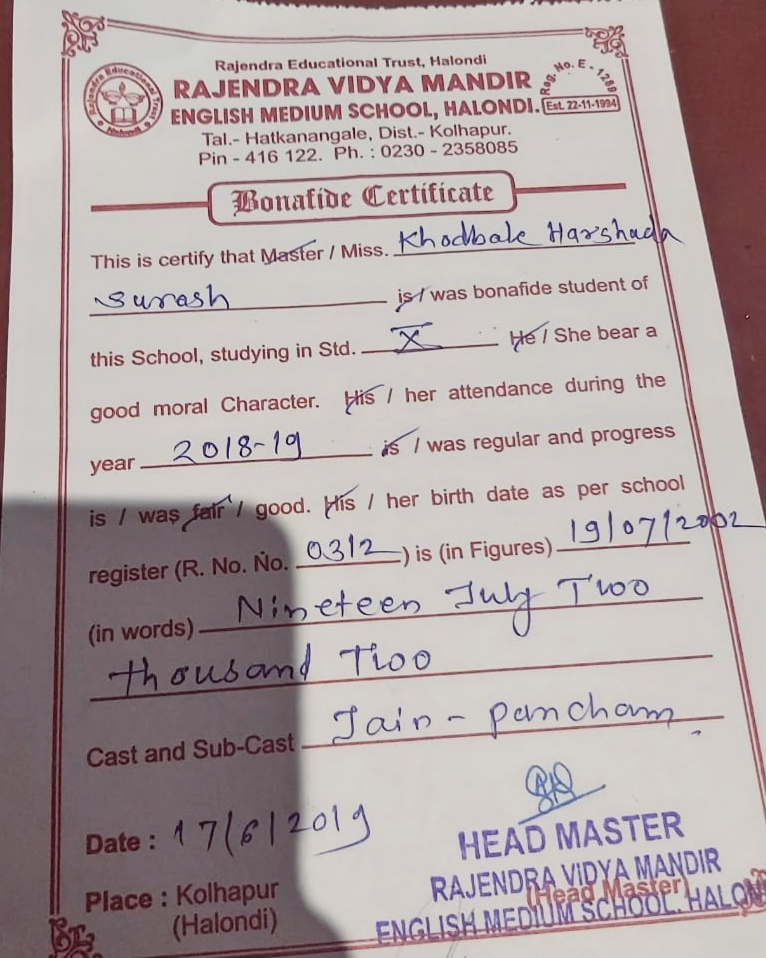 Rajendra Educational Trust, Halondi
RAJENDRA VIDYA MANDIR
ENGLISH MEDIUM SCHOOL, HALONDI.
Reg. No. E - 1289
Est. 22-11-1994
Rajendra Educational Trust
Halondi
Tal.- Hatkanangale, Dist.- Kolhapur.
Pin - 416 122. Ph. : 0230 - 2358085
Bonafide Certificate
This is certify that Master / Miss. Khodbale Harshada
Suresh is / was bonafide student of
this School, studying in Std. X He / She bear a
good moral Character. His / her attendance during the
year 2018-19 is / was regular and progress
is / was fair / good. His / her birth date as per school
register (R. No. No. 0312) is (in Figures) 19/07/2002
(in words) Nineteen July Two
thousand Two
Cast and Sub-Cast Jain - pancham
Date : 17/6/2019
Place : Kolhapur
(Halondi)
HEAD MASTER
RAJENDRA VIDYA MANDIR
(Head Master)
ENGLISH MEDIUM SCHOOL. HALON